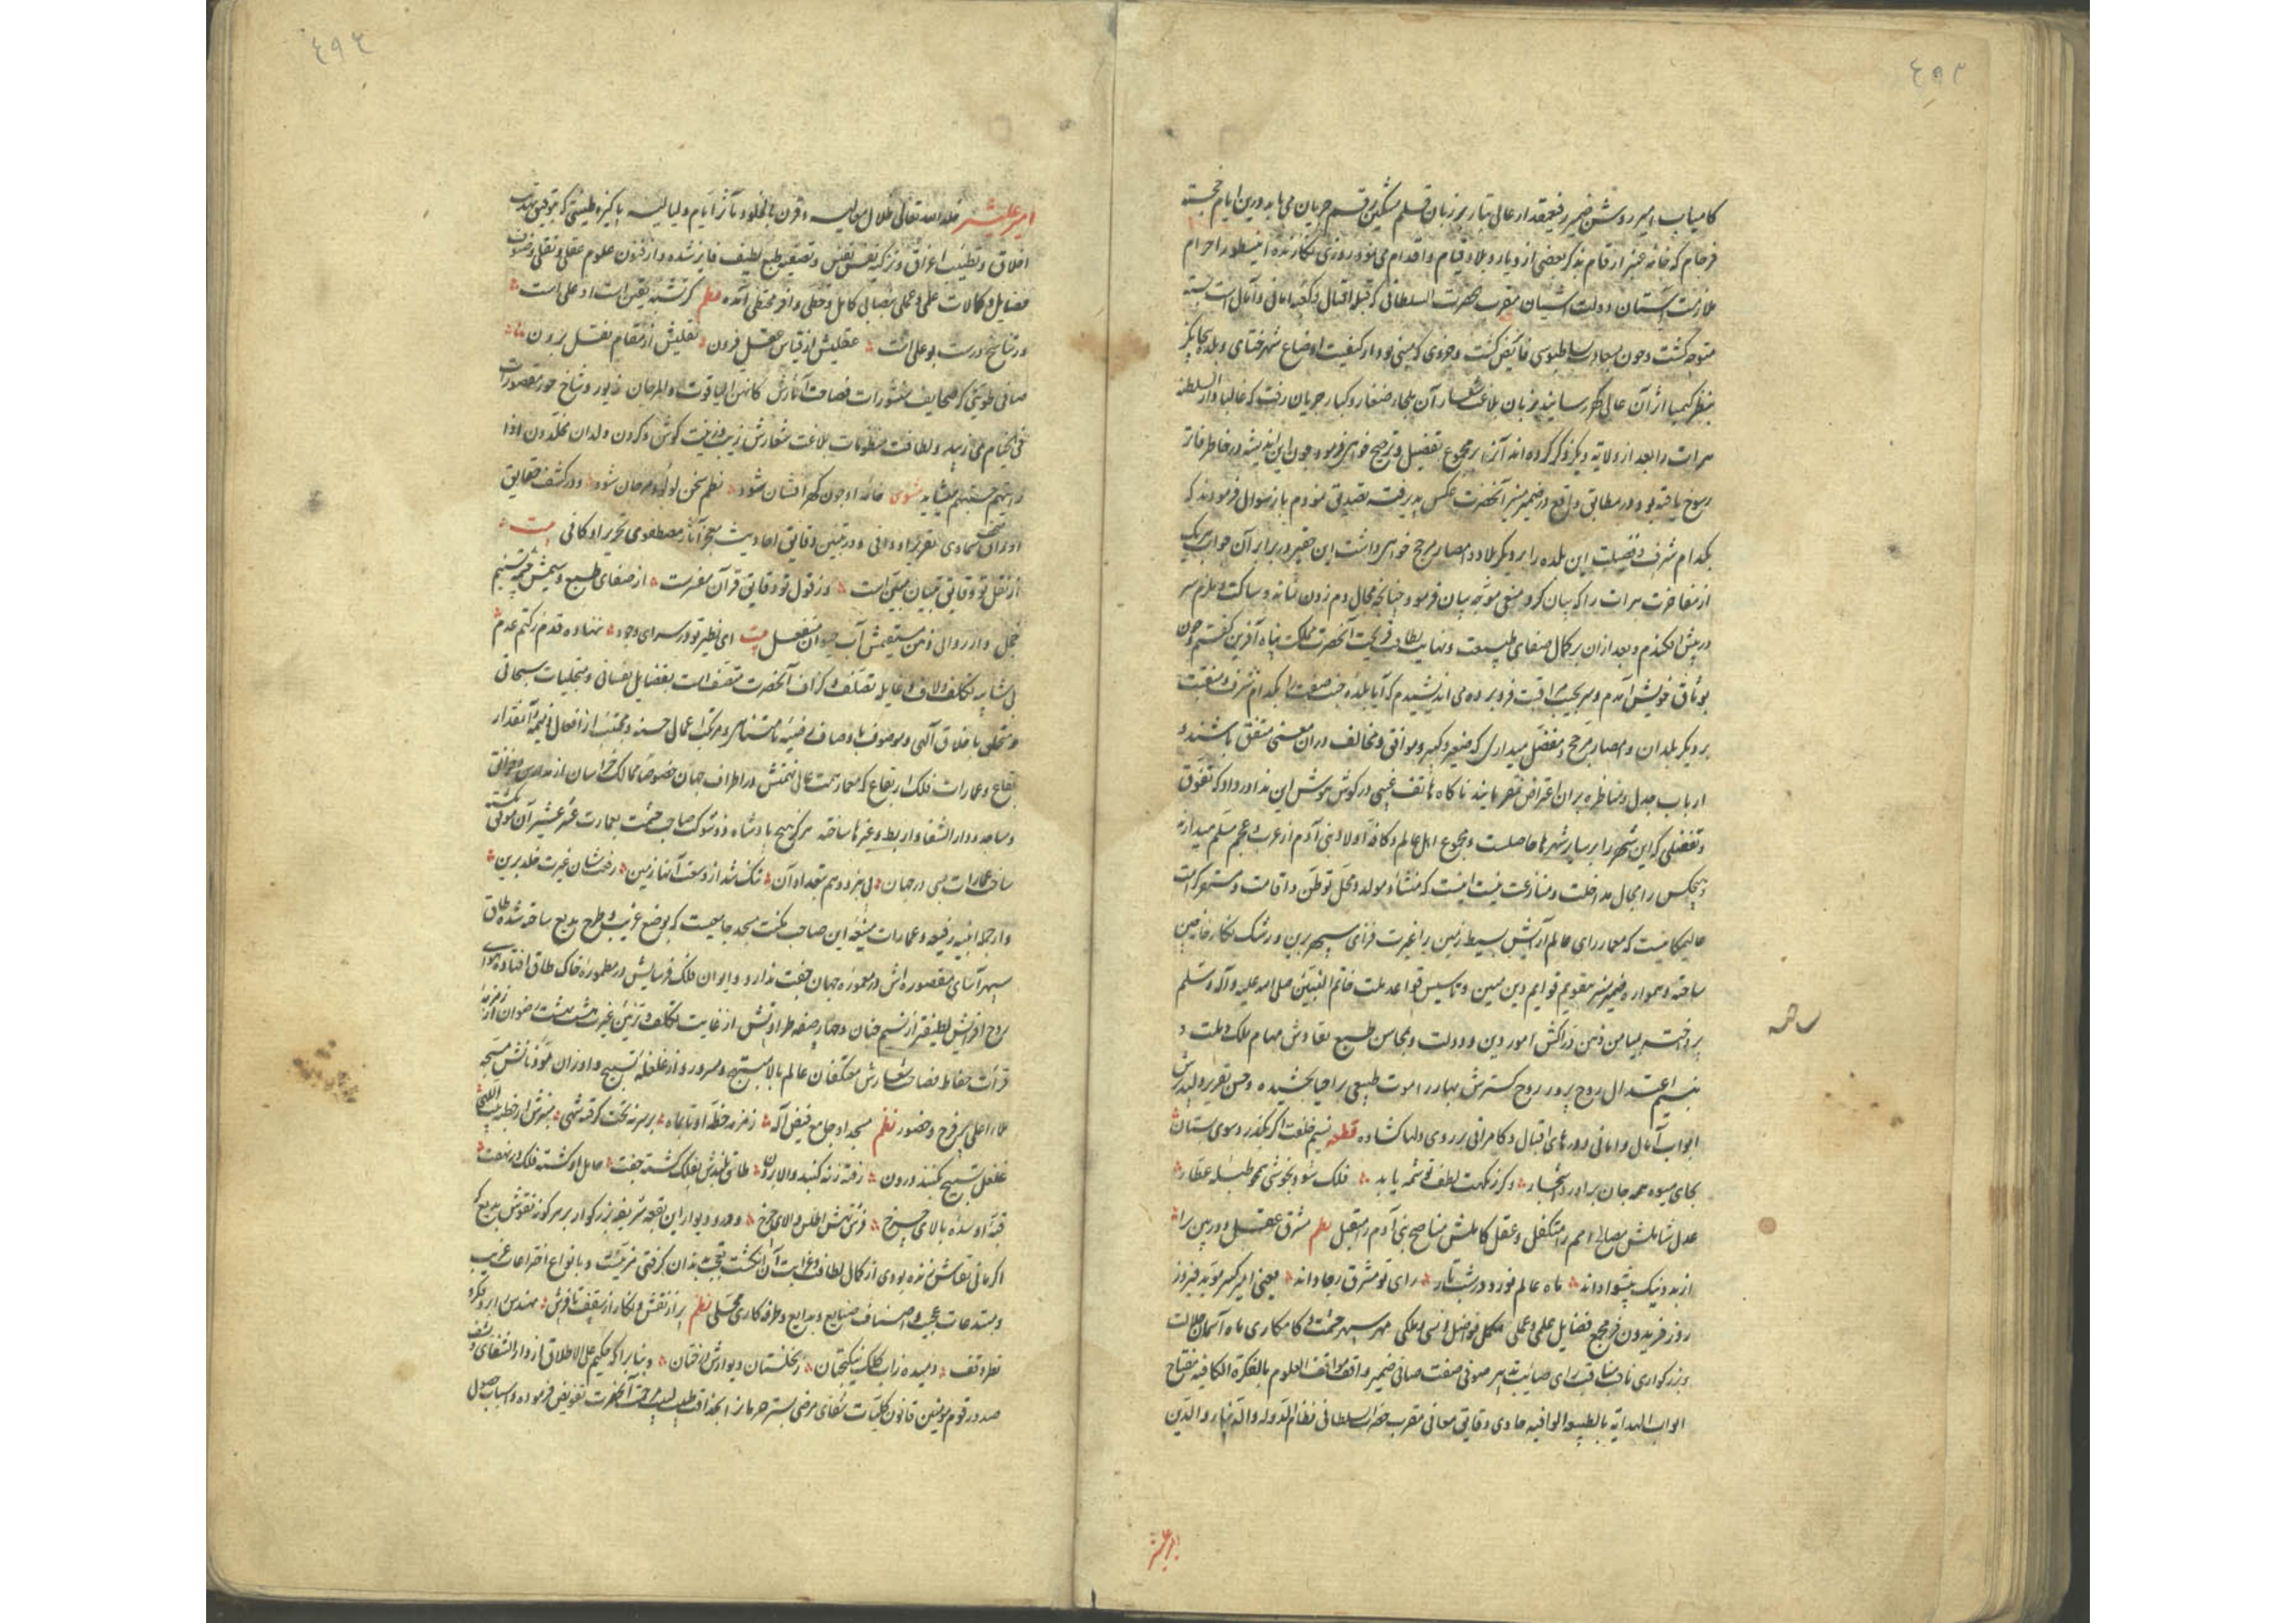 ٤٩٣
کامیاب امیر روشن ضمیر رفیع مقدار عالی تبار بر زبان قلم مشکین رقم جریان می یابد درین ایام خجسته
فرجام که خامه عنبر ارقام بذکر بعضی از دیار و بلاد قیام و اقدام می نمود روزی نگارنده این سطور احرام
ملازمت آستان دولت آشیان مقرب حضرت السلطانی که قبله اقبال و کعبه امانی و آمال است بسته
متوجه گشت و چون بسعادت بساط بوسی فایض گشت و جزوی که مبنی بود از کیفیت اوضاع شهر ختای و بلده
بنظر کیمیا اثر آن عالی گهر رسانید بزبان بلاغت شعار آن ملجاء صغار و کبار جریان رفت که غالبا دار السلطنه
هرات را بعد از ولایه دیگر ذکر کرده اند آنرا بر مجموع تفضیل و ترجیح خواهی فرمود چون این اندیشه در خاطر فاتر
رسوخ یافته بود و در مطابق واقع در ضمیر منیر آنحضرت عکس پذیرفته تصدیق نمودم باز سوال فرمودند که
بکدام شرف و فضیلت این بلده را بر دیگر بلاد و امصار مرجح خواهی داشت این حقیر در برابر آن جواب هر یک
از مفاخرت هرات را که بیان کرد منعی موجه بیان فرمود چنانچه مجال دم زدن نماند و ساکت و ملزم سر
در پیش افکندم و بعد از آن بر کمال صفای طبیعت و نهایت لطافت قریحت آنحضرت مملکت پناه آفرین گفتم و چون
بوثاق خویش آمدم و سر بجیب مراقبت فرو برده می اندیشیدم که آیا بلده جنت صفت را بکدام شرف و منقبت
بر دیگر بلدان و امصار مرجح و مفضل میداری که وضیع و کبیر و موافق و مخالف در آن معنی متفق باشند و
ارباب جدل و مناظره بر آن اعتراض نفرمایند ناگاه هاتف غیبی در گوش هوش این ندا در داد که تفوق
و تفضلی که این شهر را بر سایر شهرها حاصلست و مجموع اهل عالم و کافه اولاد بنی آدم از عرب و عجم مسلم میدارند
و هیچکس را مجال مداخلت و منازعت نیست اینست که منشاء و مولد و محل توطن و اقامت و مستقر کرامت
عالیمکانیست که معمار رای عالم آرایش بسیط زمین را غیرت فزای سپهر برین و رشک نگارخانه چین
ساخته و همواره ضمیر منیر بتقویم قوایم دین مبین و تاسیس قواعد ملت خاتم النبیین صلی الله علیه و آله و سلم
پرداخته بمیامن ذهن دراکش امور دین و دولت و بمحاسن طبع نقادش مهام ملک و ملت و
بنسیم اعتدال روح پرور روح گسترش بهار در اموت طبیعی را حیا بخشیده و حسن تقریر دلپذیرش
ابواب آمال و امانی و درهای اقبال و کامرانی بر روی دلها گشاده قطعه نسیم خلقت اگر بگذرد سوی بستان
بجای میوه همه جان برآورد اشجار و گر ز نکهت لطف تو شمه یابد فلک شود بخوشی همچو طبله عطار
عدل شاملش مصالح امم را متکفل و عقل کاملش مناصح بنی آدم را متقبل نظم مشرق عقل دوربین را
از بد و نیک پیشوا داند ماه عالم نورد در شب تار رای تو مشرق رجا داند یعنی امیر کبیر موید فیروز
روز فریدون فر مجمع فضایل علمی و عملی مکمل فواضل انسی و ملکی مهر سپهر حشمت و کامکاری ماه آسمان جلالت
و بزرگواری ثاقب رای صایب تدبیر صوفی صفت صافی ضمیر واقف مواقف العلوم بالفکرة الکافیه مفتاح
ابواب الهدایه بالطبیعه الوافیه حاوی دقایق معانی مقرب حضرت السلطانی نظام الدوله و الدنیا و الدین
٤٩٤
امیر علیشیر خلد الله تعالی ظلال معالیه و قرن بالخلود مآثر ایام و لیالیه پاکیزه طینتی که بتوفیق تهذیب
اخلاق و تطییب اعراق و تزکیه نفس نفیس و تصفیه طبع لطیف فایز شده و از فنون علوم عقلی و نقلی و صنوف
فضایل و کمالات علمی و عملی بنصابی کامل و حظی وافر محتظی آمده نظم گر نشینه یقین است او علی است
در تناسخ درست بوعلی است عقلیش از قیاس عقل فزون نقلیش از مقام نقل برون
صافی طویتی که صحایف منثورات فصاحت آثارش کانهن الیاقوت و المرجان زیور و شاخ حور مقصورات
فی الخیام می زیبد و لطافت منظومات بلاغت شعارش زیب و زینت گوش و گردن ولدان مخلدون اذا
رایتهم حسبتهم میشاید مثنوی خامه او چون گهر افشان شود نظم سخن لولو و مرجان شود و در کشف حقایق
اوراق سخن سماوی تقریر او وافی و در تبیین دقایق احادیث معجز آثار مصطفوی تحریر او کافی بیت
از نقل تو دقایق تبیان مبین است وز قول تو دقایق قرآن مفسرست از صفای طبع و سیمش چشمه تسنیم
خجل و از روانی ذهن مستقیمش آب حیوان منفعل بیت ای نظیر تو در سرای وجود ننهاده قدم ز کتم عدم
بی شایبه تکلف و لاف و غایله تصلف و گزاف آنحضرت متصف است بفضایل نفسانی و متجلیات سبحانی
و متخلق باخلاق الهی و موصوف باوصاف رضیه نامتناهی و مرتکب اعمال حسنه و مجتنب از افعال ذمیمه و آنمقدار
بقاع و عمارات فلک ارتفاع که معمار همت عالی نهمتش در اطراف جهان خصوصا ممالک خراسان از مدارس و خوانق
و مساجد و دار الشفا و اربطه و غیرها ساخته هرگز هیچ پادشاه ذو شوکت صاحب حشمت بعمارت عشر عشیر آن موفق نگشته
ساخت عمارات بسی در جهان بی بزد و هم بتعداد آن تنگ شد از وسعت آنها زمین رفتشان غیرت خلد برین
و از جمله ابنیه رفیعه و عمارات منیعه این صاحب مکنت مسجد جامعیست که بوضع غریب و طرح بدیع ساخته شده طاق
سپهر آسای مقصوره اش در معموره جهان جفت ندارد و ایوان فلک فرسایش در مطموره خاک طاق افتاده هوای
روح افزایش لطیفتر از نسیم جنان و جدار صفه طراوتش از غایت تکلف و تزئین غیرت هشت بهشت رضوان از زمزمه
قرات حفاظ فصاحت شعارش معتکفان عالم بالا مبتهج و مسرور و از غلغله تسبیح و اوزان موذنانش مسبحه
ملاء اعلی بفرح و حضور نظم مسجد او جامع فیض آله زمزمه خطبه او تا بماه بر سر نه تخت گرفته شهی منبرش از خطبه
غلغل تسبیح گنبد درون رفته ز نه گنبد والا برون طاق بلندش بفلک گشته جفت حامل او گشته فلک در نهفت
قبه او سده بالای چرخ فرش تهش اطلس والای چرخ و در و دیوار این بقعه شریفه بزرگوار بر مرکوز نقوش بدیع که
اگر مانی نقاش زنده بودی از کمال لطافت و غرابت آن انگشت تعجب بدندان گرفتی مزین است و بانواع اختراعات غریب
و مبتدعات عجیب و اصناف صنایع و بدایع و طرفه کاری محلی نظم پر از نقش و نگار از سقف تا فرش مهندس را برو فکر و
نظر وقف دمیده ز آب کلک نیکبختان ز نخلستان دیوارش درختان و بنا بر آنکه حکیم علی الاطلاق از دار الشفای
صدور قوم مومنین قانون کلیات شفای مرضی بستر حرمان از حذاقت طبیب مرحمت آنحضرت تفویض فرموده و اسباب حصول
امیر علیشیر